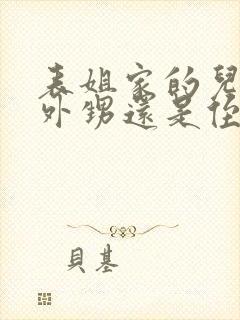 表姐家的兒
外甥還是侄
貝基